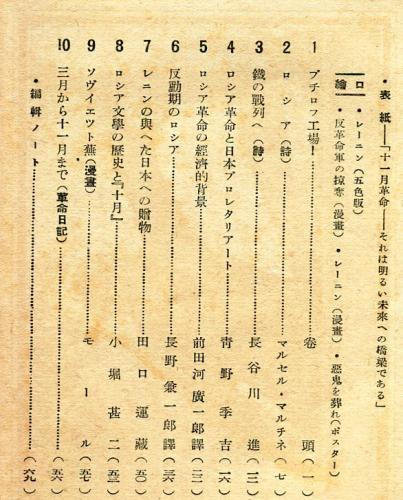 ・表紙―「十一月革命――それは明るい未來への橋梁である」
口繪
・レーニン（五色版）
・反革命軍の掠奪（漫畫）・レーニン（漫畫）・惡鬼を葬れ（ポスター）
1 プチロフ工場！……卷頭（一）
2 ロシア（詩）……マルセル・マルチネ（七）
3 鐵の戰列へ（詩）……長谷川進（一二）
4 ロシア革命と日本プロレタリアート……靑野季吉（一六）
5 ロシア革命の經濟的背景……前田河廣一郎譯（二二）
6 反動期のロシア……長野兼一郎譯（三六）
7 レニンの與へた日本への贈物……田口運藏（五〇）
8 ロシア文學の歷史と『十月』……小堀甚二（五三）
9 ソヴイエツト蕪（漫畫）……モール（五七）
10 三月から十一月まで（革命日記）……（五六）
・編輯ノート……（六九）